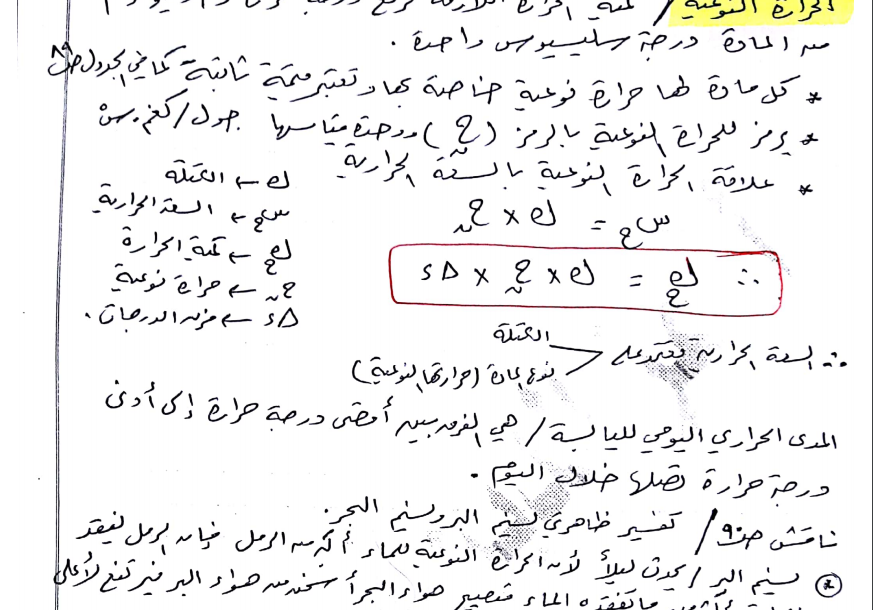 الحرارة النوعية / كمية الحرارة اللازمة لرفع درجة حرارة
من المادة درجة سليسيوس واحدة .
* كل مادة لها حرارة نوعية خاصة بها وتعتبر قيمة ثابتة كما في الجدول ص ٨٩
* يرمز للحرارة النوعية بالرمز (حن) ووحدة قياسها جول/كغم.سْ
* علاقة الحرارة النوعية بالسعة الحرارية
سح = ك × حن
∴ كح = ك × حن × Δد
ك ← الكتلة
سح ← السعة الحرارية
كح ← كمية الحرارة
حن ← حرارة نوعية
Δد ← فرق الدرجات .
∴ السعة الحرارية تعتمد على
الكتلة
نوع المادة (حرارتها النوعية)
المدى الحراري اليومي لليابسة / هي الفرق بين أقصى درجة حرارة إلى أدنى
درجة حرارة تصلها خلال اليوم .
ناقش ص ٩٠ / تفسير ظاهرتي نسيم البر ونسيم البحر .
② نسيم البر / يحدث ليلاً لأن الحرارة النوعية للماء أكبر من الرمل فإن الرمل يفقد
ما تفقده الماء فيصبح هواء البحر أسخن من هواء البر فيرتفع لأعلى